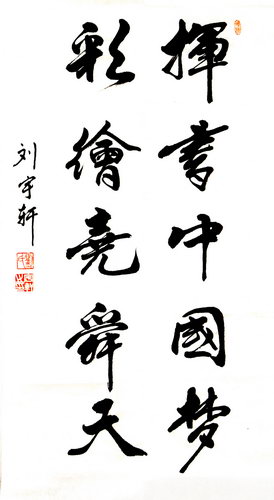 揮書中國梦
彩繪堯舜天
刘宇轩